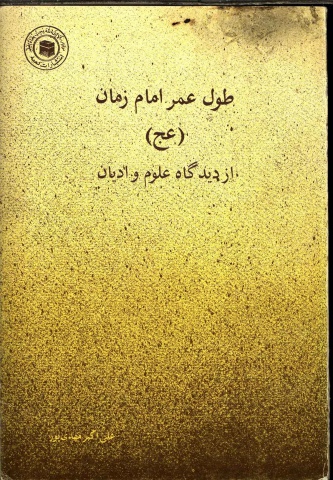 طول عمر امام زمان
(عج)
از دیدگاه علوم و ادیان
علی اکبر مهدی‌پور